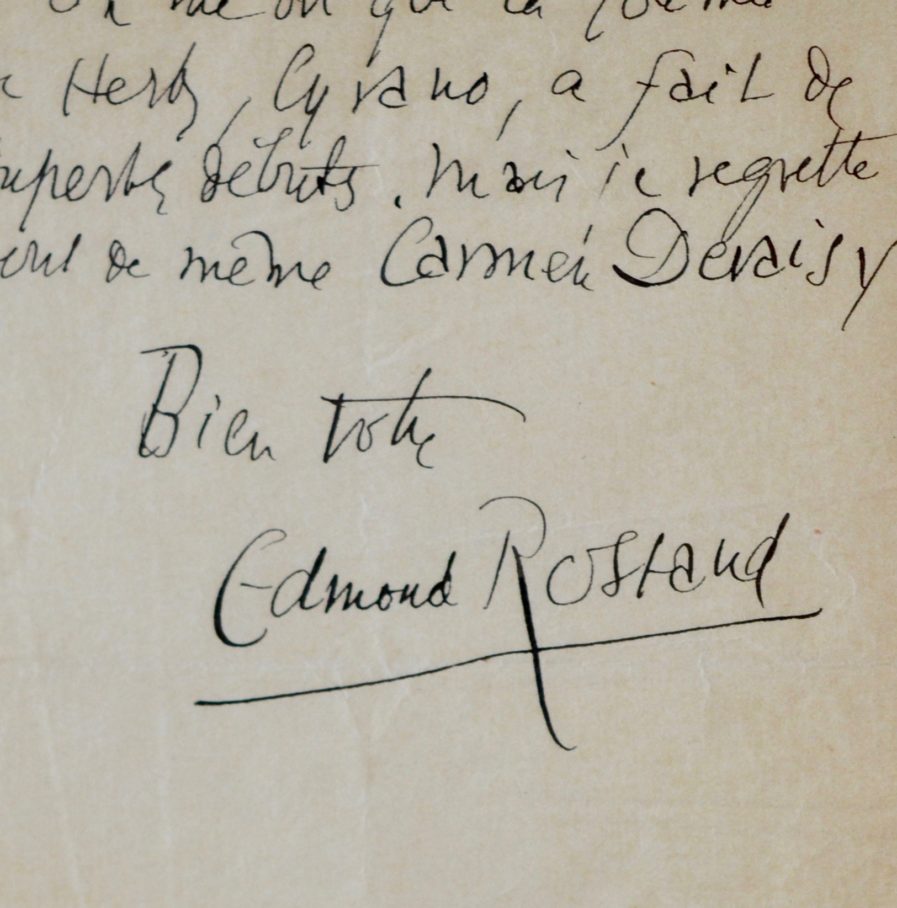 que la
Hertz, Cyrano, a fait de
superbes débuts. Mais je regrette
tout de même Carmen Deraisy
Bien votre
Edmond Rostand